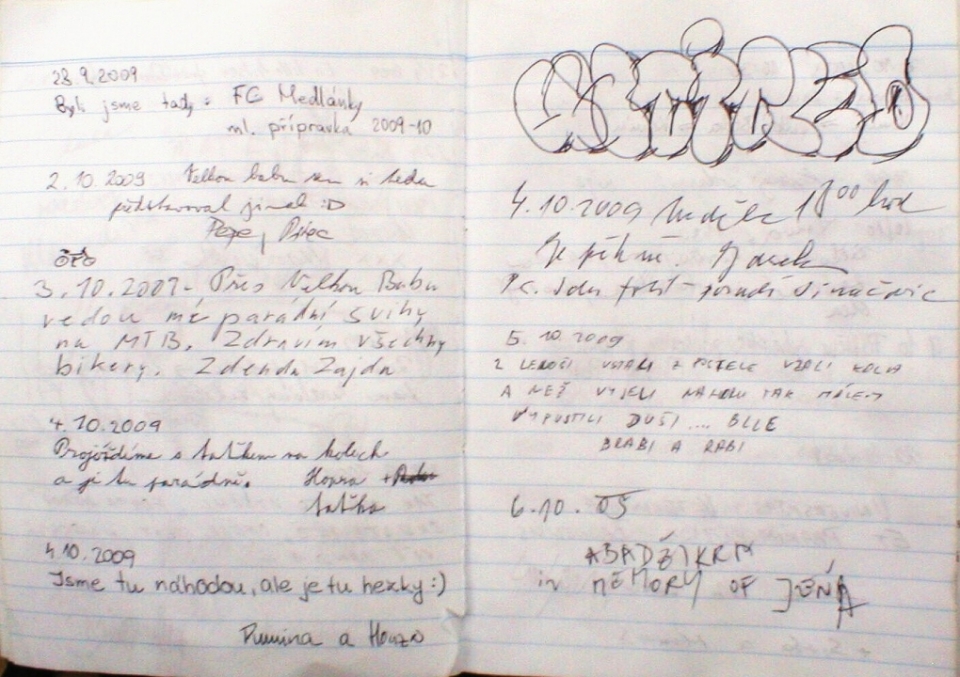 28.9.2009
Byli jsme tady: FC Medlánky
ml. přípravka 2009-10
2.10.2009 Velkou babu sem si teda
představoval jinak :D
Pepe,
3.10.2009 - Přes Velkou Babu
vedou mé parádní švihy
na MTB. Zdravím všechny
bikery. Zdenda Zajda
4.10.2009
Projíždíme s taťkem na kolech
a je tu parádně. Honza +
taťka
4.10.2009
Jsme tu náhodou, ale je tu hezky :)
a Honza
4.10.2009 neděle 18 00 hod
Je pěkně.
5.10.2009
2 LENOŠI VSTALI Z POSTELE VZALI KOLA
A NEŽ VYJELI NAHORU TAK MÁLEM
VYPUSTILI DUŠI ... BLLE
BRABI A RABI
6.10.
in MEMORY OF